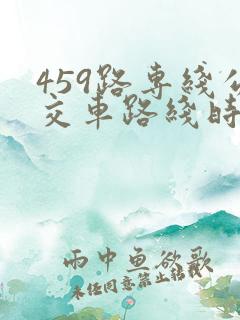 459路专綫公
交車路綫時
雨中魚欲歌
未经同意禁止转载